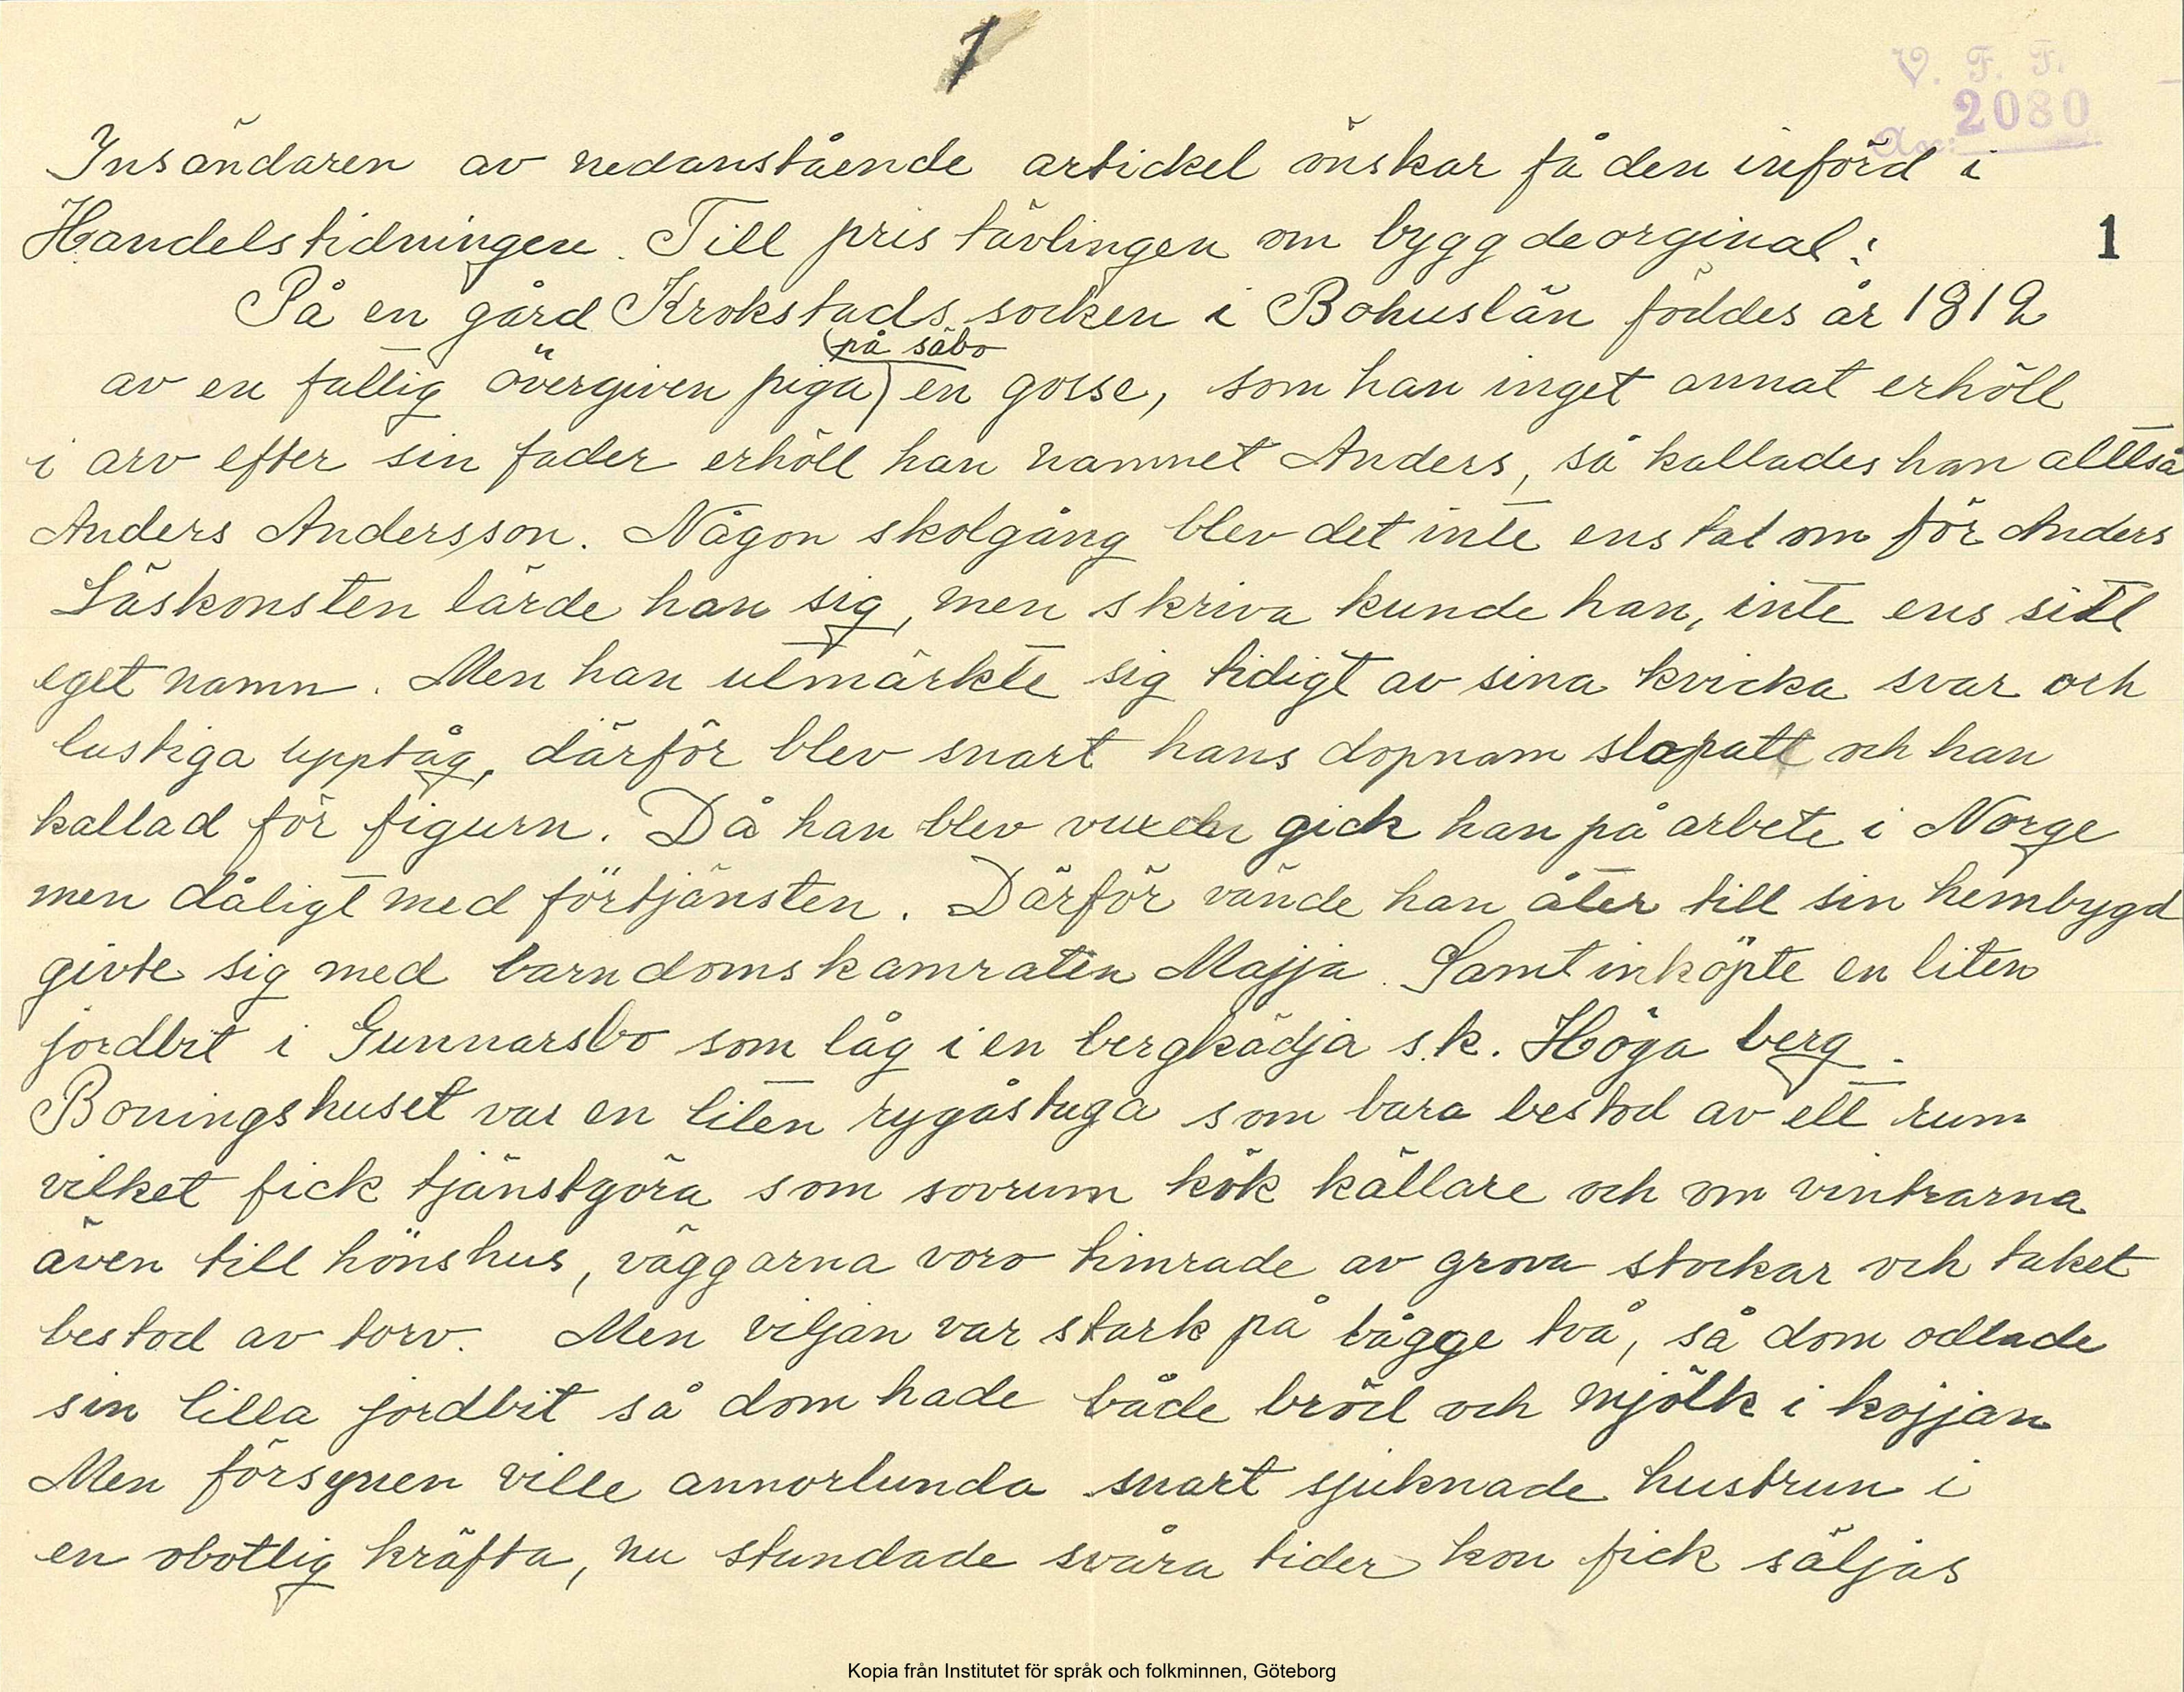 1
V. F. F.
2080
Insändaren av nedanstående artickel önskar få den införd i
Handelstidningen. Till pris tävlingen om byggdeorginal:
1
På en gård Krokstads socken i Bohuslän föddes år 1812
(på säbo
av en fattig övergiven piga) en gosse, som han inget annat erhöll
i arv efter sin fader erhöll han namnet Anders, så kallades han alltså
Anders Andersson. Någon skolgång blev det inte ens tal om för Anders
Läskonsten lärde han sig, men skriva kunde han, inte ens sitt
eget namn. Men han utmärkte sig tidigt av sina kvicka svar och
lustiga upptåg, därför blev snart hans dopnam slopatt och han
kallad för figurn. Då han blev vuxen gick han på arbete i Norge
men dåligt med förtjänsten. Därför vände han åter till sin hembygd
givte sig med barndomskamraten Majja. Samt inköpte en liten
jordbit i Gunnarsbo som låg i en bergkädja s.k. Höga berg.
Boningshuset var en liten rygåstuga som bara bestod av ett rum
vilket fick tjänstgöra som sovrum kök källare och om vintrarna
även till hönshus, väggarna voro timrade av grova stockar och taket
bestod av torv. Men viljan var stark på bågge två, så dom odlade
sin lilla jordbit så dom hade både bröd och mjölk i kojjan
Men försynen ville annorlunda snart sjuknade hustrun i
en obotlig kräfta, nu stundade svåra tider kon fick säljas
Kopia från Institutet för språk och folkminnen, Göteborg